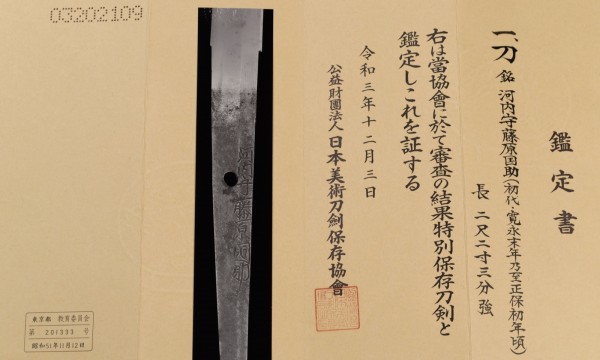 鑑定書
一、刀 銘 河内守藤原国助(初代・寛永末年乃至正保初年頃)
長 二尺二寸三分強
右は當協會に於て審査の結果特別保存刀剣と
鑑定しこれを証する
令和三年十二月三日
公益財團法人 日本美術刀剣保存協會
河内守藤原国助
03202109
東京都 教育委員会
第 201333 号
昭和51年11月12日